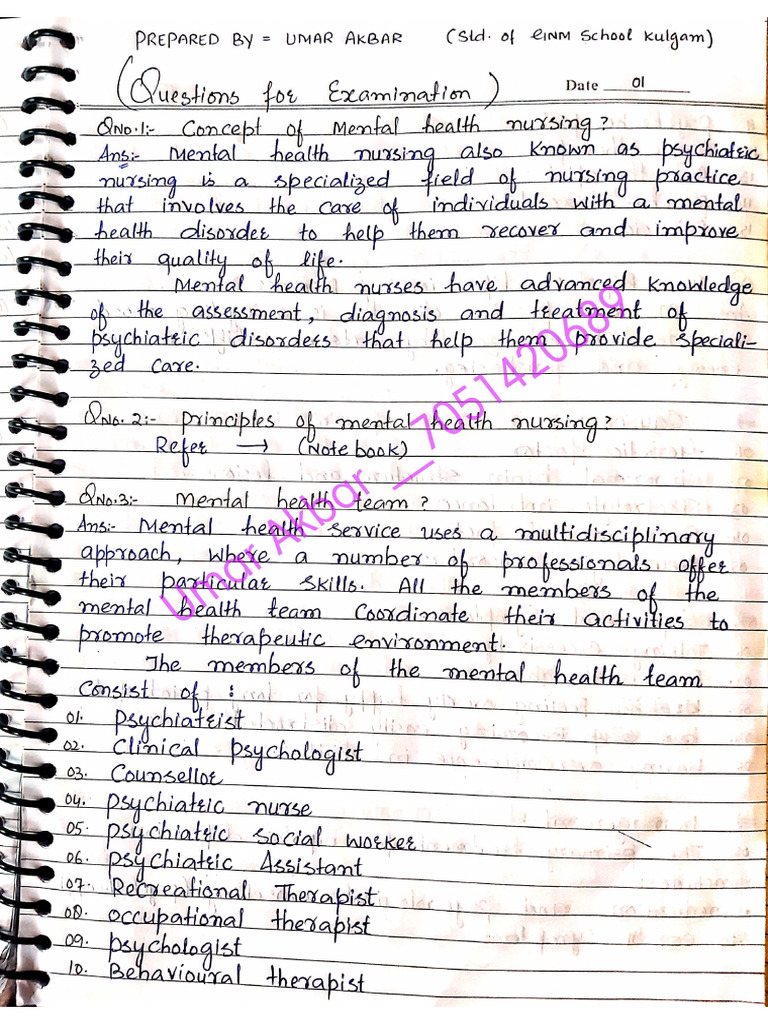 PREPARED BY = UMAR AKBAR (Std. of GNM School Kulgam)
(Questions for Examination) Date 01
QNo.1:- Concept of Mental health nursing?
Ans:- Mental health nursing also known as psychiatric
nursing is a specialized field of nursing practice
that involves the care of individuals with a mental
health disorder to help them recover and improve
their quality of life.
Mental health nurses have advanced knowledge
of the assessment, diagnosis and treatment of
psychiatric disorders that help them provide speciali-
zed care.
QNo. 2:- principles of mental health nursing?
Refer → (Note book)
QNo.3:- Mental health team?
Ans:- Mental health service uses a multidisciplinary
approach, where a number of professionals offer
their particular skills. All the members of the
mental health team Coordinate their activities to
promote therapeutic environment.
The members of the mental health team
Consist of :
01. Psychiatrist
02. Clinical psychologist
03. Counsellor
04. Psychiatric nurse
05. Psychiatric social worker
06. Psychiatric Assistant
07. Recreational Therapist
08. Occupational therapist
09. Psychologist
10. Behavioural therapist
Umar Akbar__7051420689